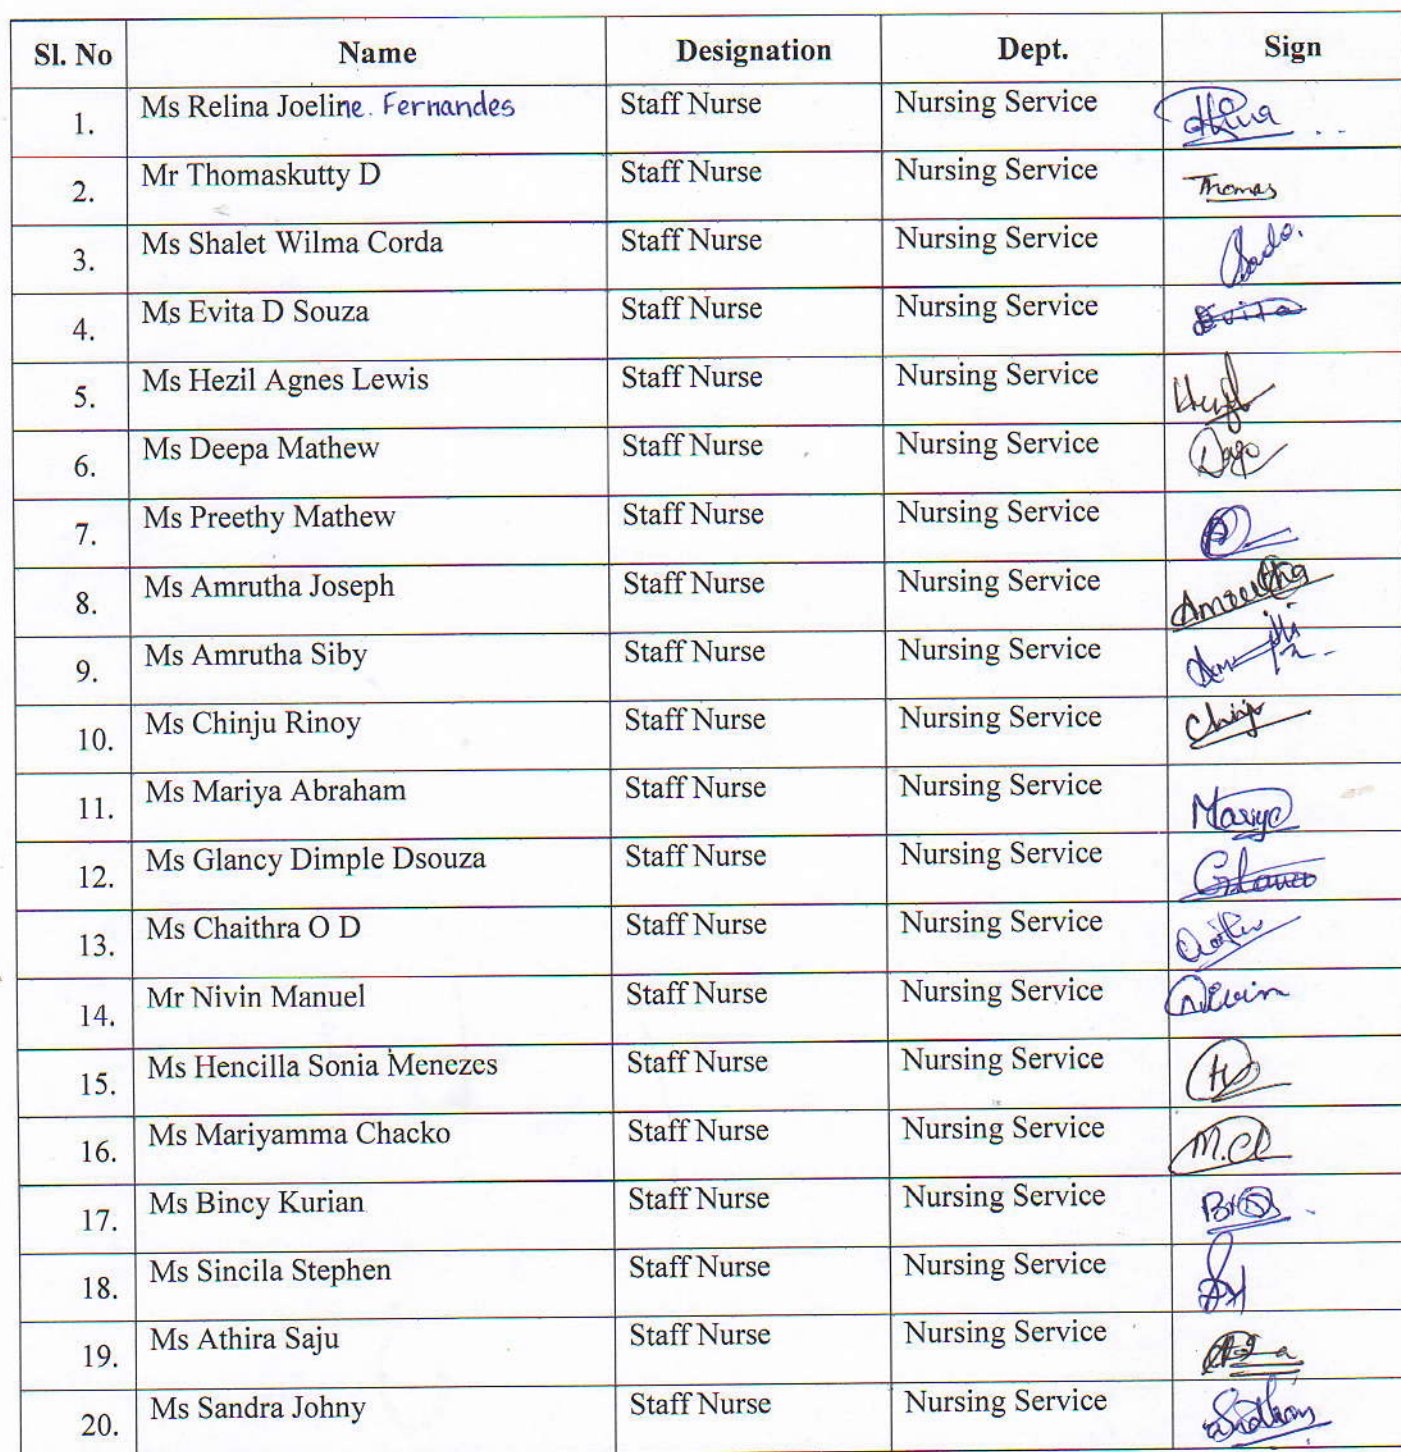 Sl. No Name Designation Dept. Sign
1. Ms Relina Joeline Fernandes Staff Nurse Nursing Service
2. Mr Thomaskutty D Staff Nurse Nursing Service Thomas
3. Ms Shalet Wilma Corda Staff Nurse Nursing Service
4. Ms Evita D Souza Staff Nurse Nursing Service Evita
5. Ms Hezil Agnes Lewis Staff Nurse Nursing Service
6. Ms Deepa Mathew Staff Nurse Nursing Service
7. Ms Preethy Mathew Staff Nurse Nursing Service
8. Ms Amrutha Joseph Staff Nurse Nursing Service
9. Ms Amrutha Siby Staff Nurse Nursing Service
10. Ms Chinju Rinoy Staff Nurse Nursing Service
11. Ms Mariya Abraham Staff Nurse Nursing Service Mariya
12. Ms Glancy Dimple Dsouza Staff Nurse Nursing Service
13. Ms Chaithra O D Staff Nurse Nursing Service
14. Mr Nivin Manuel Staff Nurse Nursing Service Nivin
15. Ms Hencilla Sonia Menezes Staff Nurse Nursing Service
16. Ms Mariyamma Chacko Staff Nurse Nursing Service
17. Ms Bincy Kurian Staff Nurse Nursing Service
18. Ms Sincila Stephen Staff Nurse Nursing Service
19. Ms Athira Saju Staff Nurse Nursing Service
20. Ms Sandra Johny Staff Nurse Nursing Service